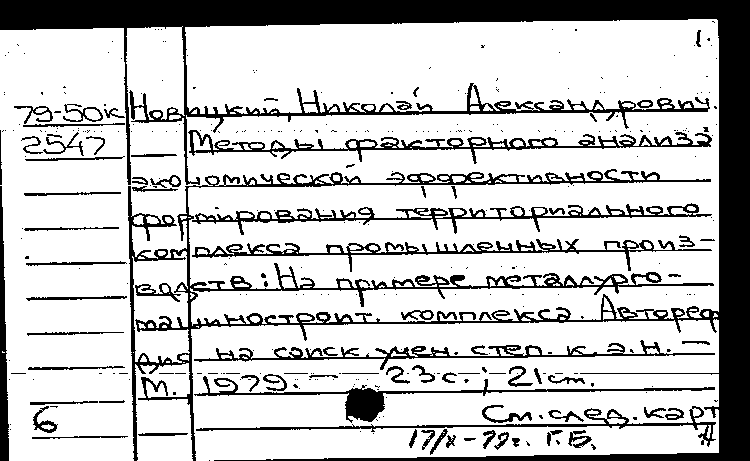 1.
79-50к Новицкий, Николай Александрович.
2547 Методы факторного анализа
экономической эффективности
формирования территориального
комплекса промышленных произ-
водств: На примере металлурго-
машиностроит. комплекса. Автореф
дис на соиск. учен. степ. к. э. н. —
М., 1979. — 23 с.; 21 см.
6 См. след. карт
17/X-79г. Г.Б.